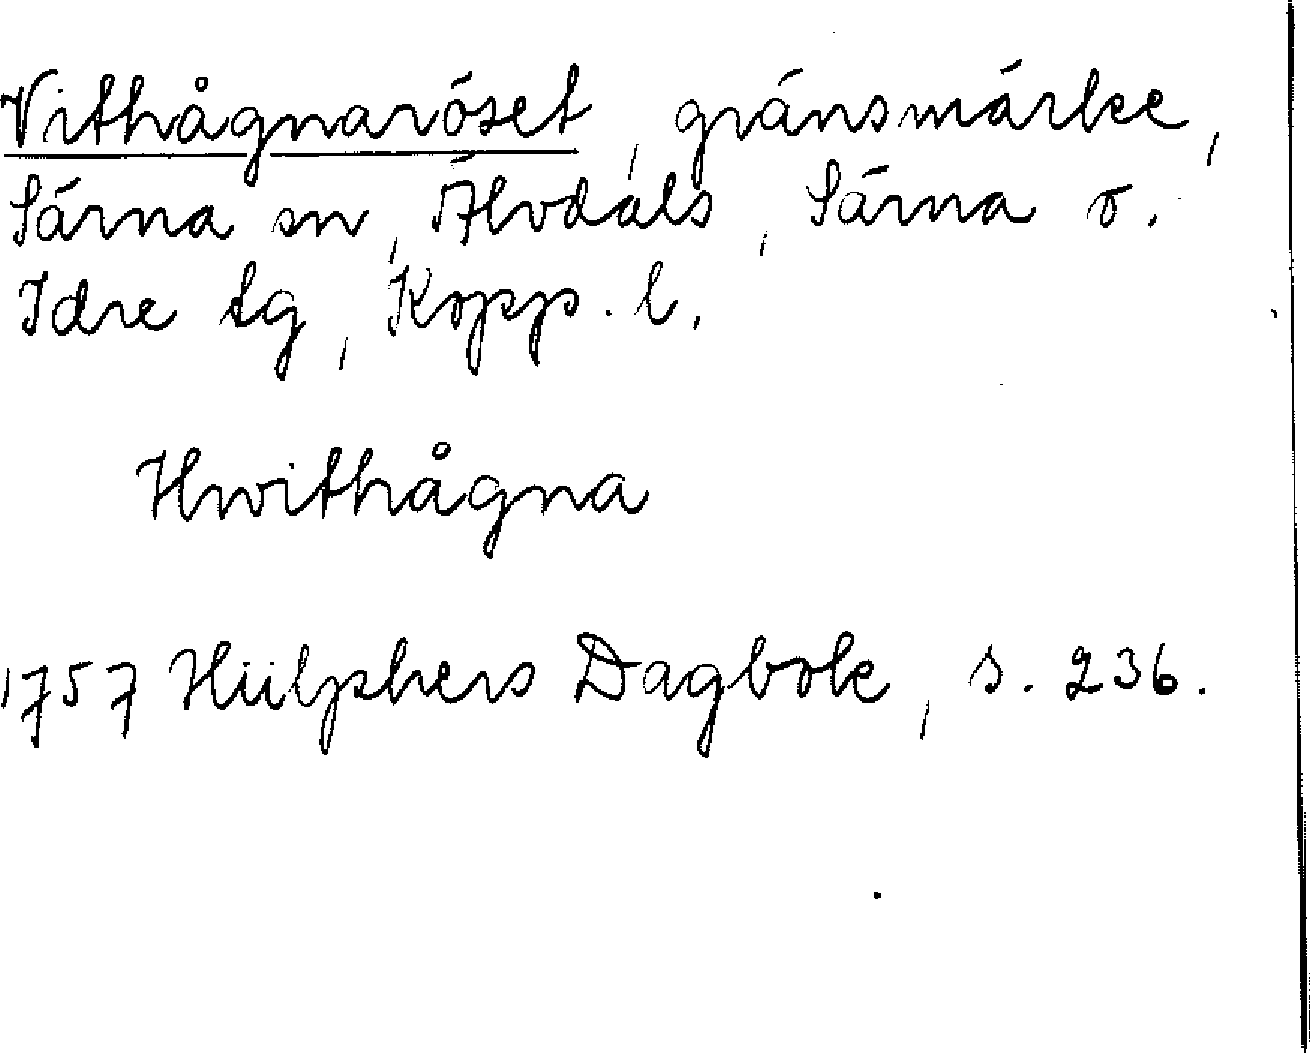 Vithågnaröset, gränsmärke,
Särna sn, Älvdals, Särna o.
Idre tg, Kopp. l.
Hwithågna
1757 Hülphers Dagbok, s. 236.